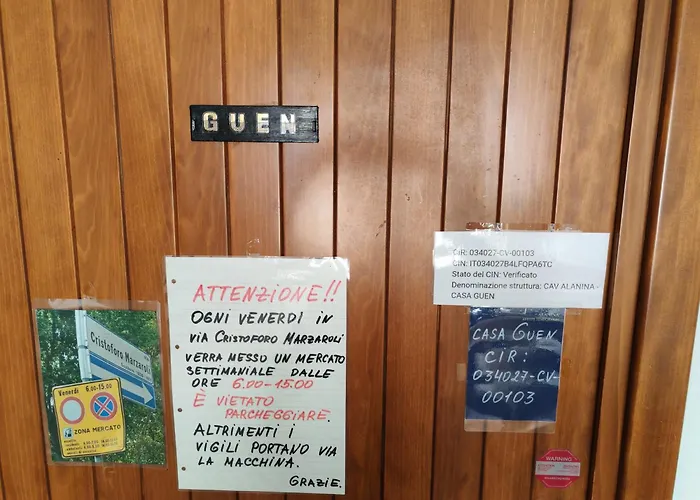 GUEN
CIR: 034027-CV-00103
CIN: IT034027B4LFQPA6TC
Stato del CIN: Verificato
Denominazione struttura: CAV ALANINA -
CASA GUEN
ATTENZIONE!!
OGNI VENERDI IN
VIA CRISTOFORO MARZAROLI
VERRA MESSO UN MERCATO
SETTIMANALE DALLE
ORE 6.00-15.00
È VIETATO
PARCHEGGIARE.
ALTRIMENTI I
VIGILI PORTANO VIA
LA MACCHINA.
GRAZIE.
Cristoforo Marzaroli
Venerdì 6.00-15.00
ZONA MERCATO
CASA GUEN
CIR:
034027-CV-
00103
WARNING